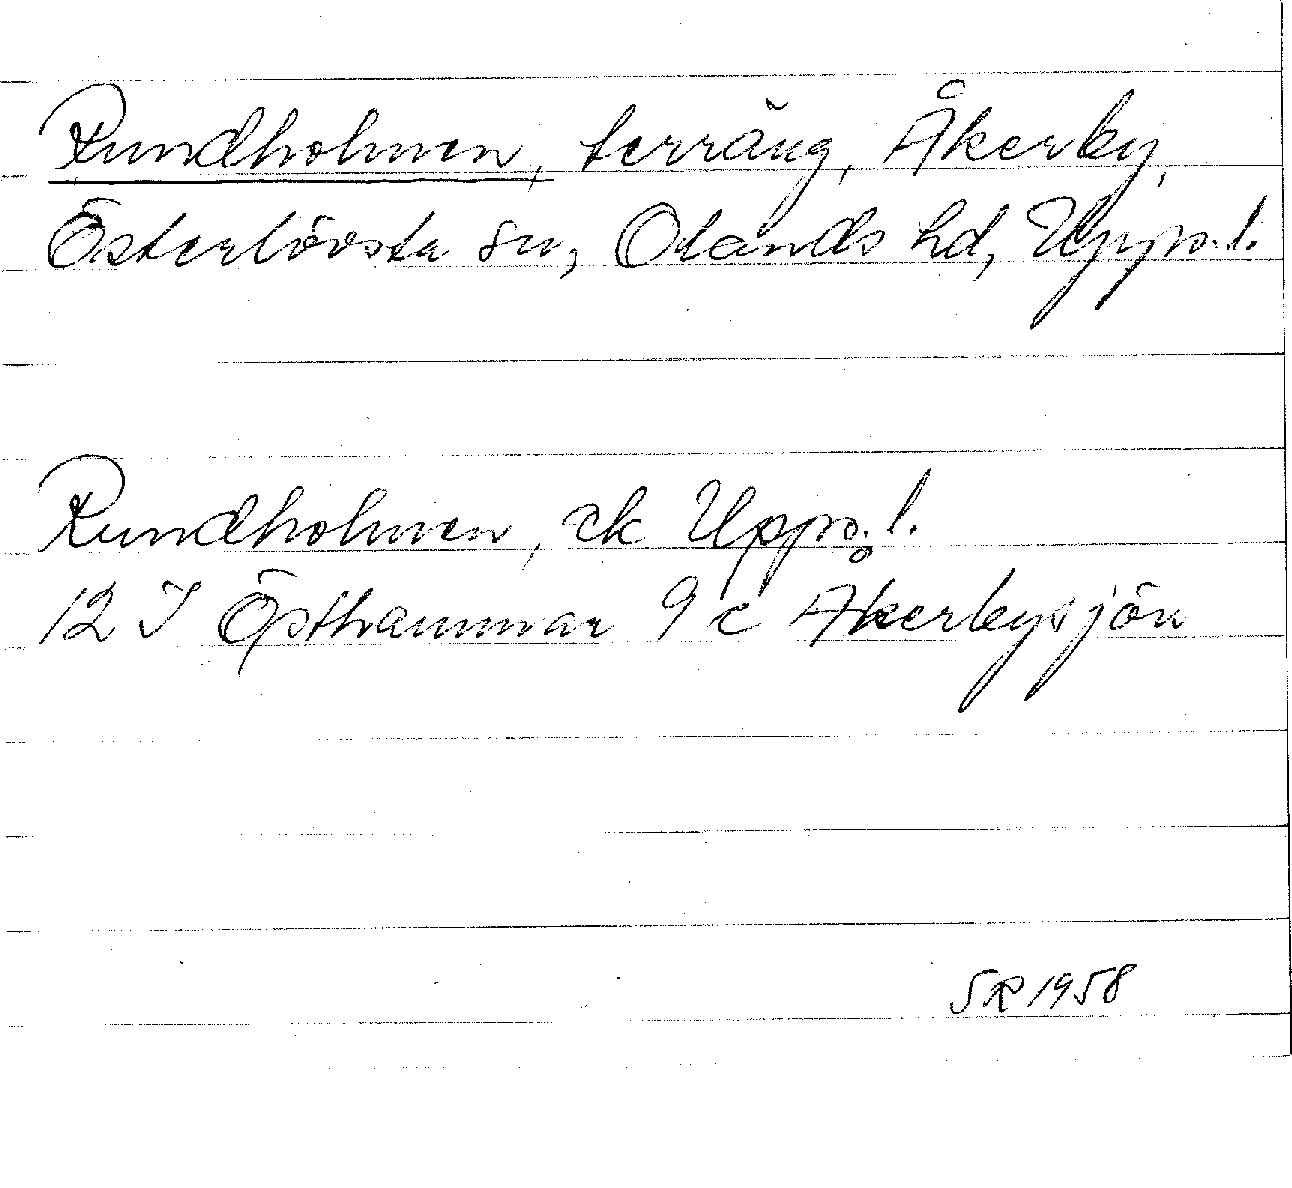 Rundholmen, terräng, Åkerby,
Österlövsta sn, Olands hd, Upps.l.
Rundholmen, ek Upps.l.
12 I Östhammar 9 c Åkerbysjön
SR 1958